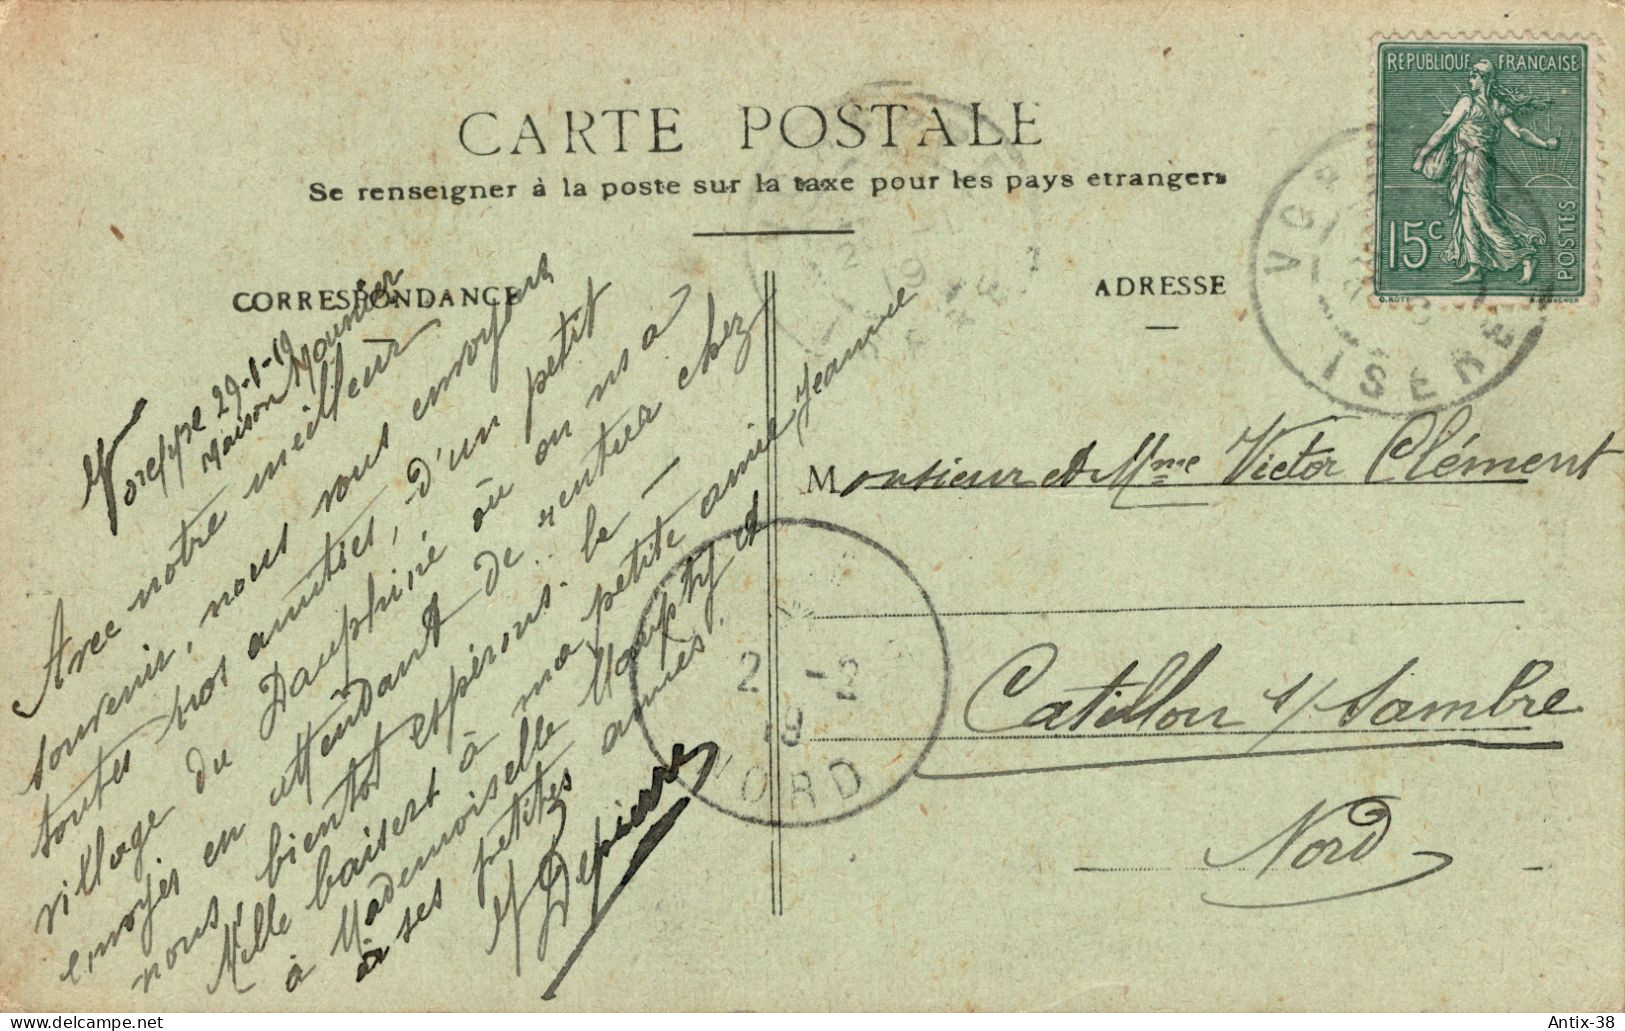 CARTE POSTALE
Se renseigner à la poste sur la taxe pour les pays etrangers
CORRESPONDANCE
ADRESSE
REPUBLIQUE FRANÇAISE
15c
POSTES
O. ROTY
ISERE
Voreppe 29-1-19
Maison Mounier
Avec notre meilleur
souvenir, nous vous envoyons
toutes nos amitiés, d'un petit
village du Dauphiné où on ns a
envoyés en attendant de rentrer chez
nous, bientôt espérons-le –
Mille baisers à ma petite amie Jeanne
à Mademoiselle et
à ses petites amies.
Depierre
Monsieur et Mme Victor Clément
Catillon s/ Sambre
Nord
2 -2
19
NORD
Antix-38